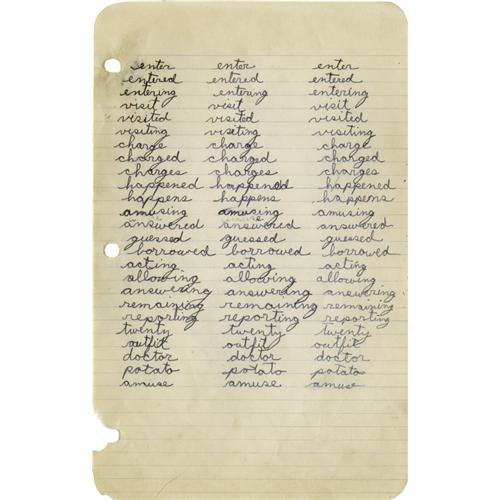 enter enter enter
entered entered entered
entering entering entering
visit visit visit
visited visited visited
visiting visiting visiting
charge charge charge
charged charged charged
charges charges charges
happened happened happened
happens happens happens
amusing amusing amusing
answered answered answered
guessed guessed guessed
borrowed borrowed borrowed
acting acting acting
allowing allowing allowing
answering answering answering
remaining remaining remaining
reporting reporting reporting
twenty twenty twenty
outfit outfit outfit
doctor doctor doctor
potato potato potato
amuse amuse amuse